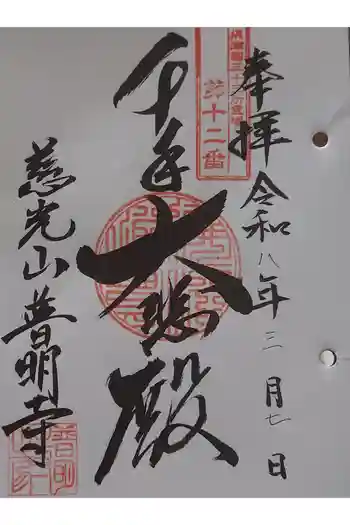 奉拝 令和八年三月七日
第十二番
千手大悲殿
慈光山普明寺